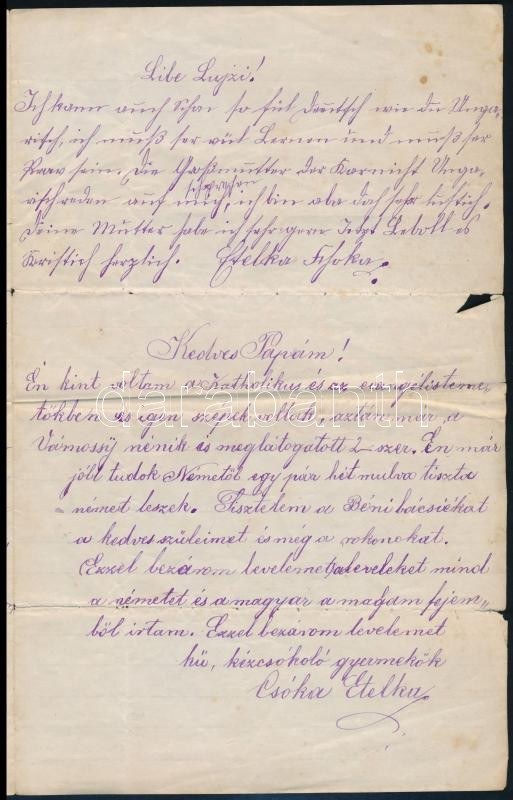 Libe Lujzi!
Ich kann auch Schon so fiel Deutsch wie du Unga-
risch, ich muß ser viel Lernen und muß ser
Brav sein. Die Großmutter Der Karnicht Unga-
risch reden auf mich, ich bin aba doch sehr lustich.
sischprechen
Deine Mutter habe ich sehr gern Jetzt Lebolt es
herzlich. Etelka Tschoka.
Kedves Papám!
Én kint voltam a Katholikus és az evangélisteme-
tőkben és igen szépek voltak, aztán már a
Vámossy nénik is meglátogatott 2-szer. Én már
jólt tudok Németöl egy pár hét mulva tiszta
német leszek. Tisztelem a Béni bácsiékat
a kedves szüleimet és még a rokonokat.
Ezzel bezárom levelemet, a leveleket mind
a németet és a magyar a magam fejem-
ből irtam. Ezzel bezárom levelemet
hü, kézcsókoló gyermekök
Csóka Etelka
darabanth